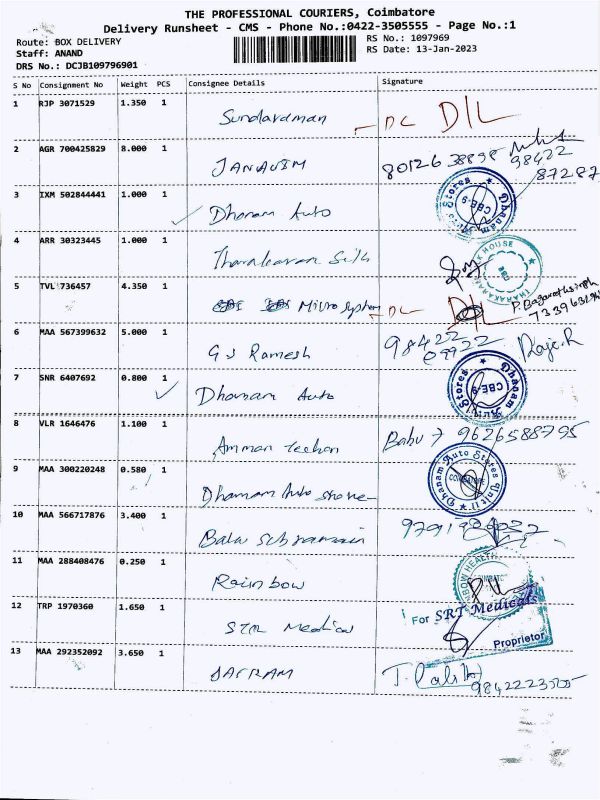 THE PROFESSIONAL COURIERS, Coimbatore
Delivery Runsheet - CMS - Phone No.:0422-3505555 - Page No.:1
Route: BOX DELIVERY
RS No.: 1097969
Staff: ANAND
RS Date: 13-Jan-2023
DRS No.: DCJB109796901
S No Consignment No Weight PCS Consignee Details Signature
1 RJP 3071529 1.350 1
Sundararaman DC DIL
2 AGR 700425829 8.000 1
JANAVIM 8012638898 98422
87287
3 IXM 502844441 1.000 1
Dhanam Auto Dhanam Auto Stores CBE-9
4 ARR 30323445 1.000 1
Tharakaram Silk HOUSE CBE
5 TVL 736457 4.350 1
Micro system DC DIL
6 MAA 567399632 5.000 1
G S Ramesh 98422 09922 Raje.R
7 SNR 6407692 0.800 1
Dhanam Auto Dhanam Auto Stores CBE-9
8 VLR 1646476 1.100 1
Amman techon Babu 7 9626588795
9 MAA 300220248 0.580 1
Dhanam Auto store Dhanam Auto Stores Unit II COIMBATORE
10 MAA 566717876 3.400 1
Bala
11 MAA 288408476 0.250 1
Rainbow
12 TRP 1970360 1.650 1
For SRT Medicals
Medical
Proprietor
13 MAA 292352092 3.650 1
SAIRAM